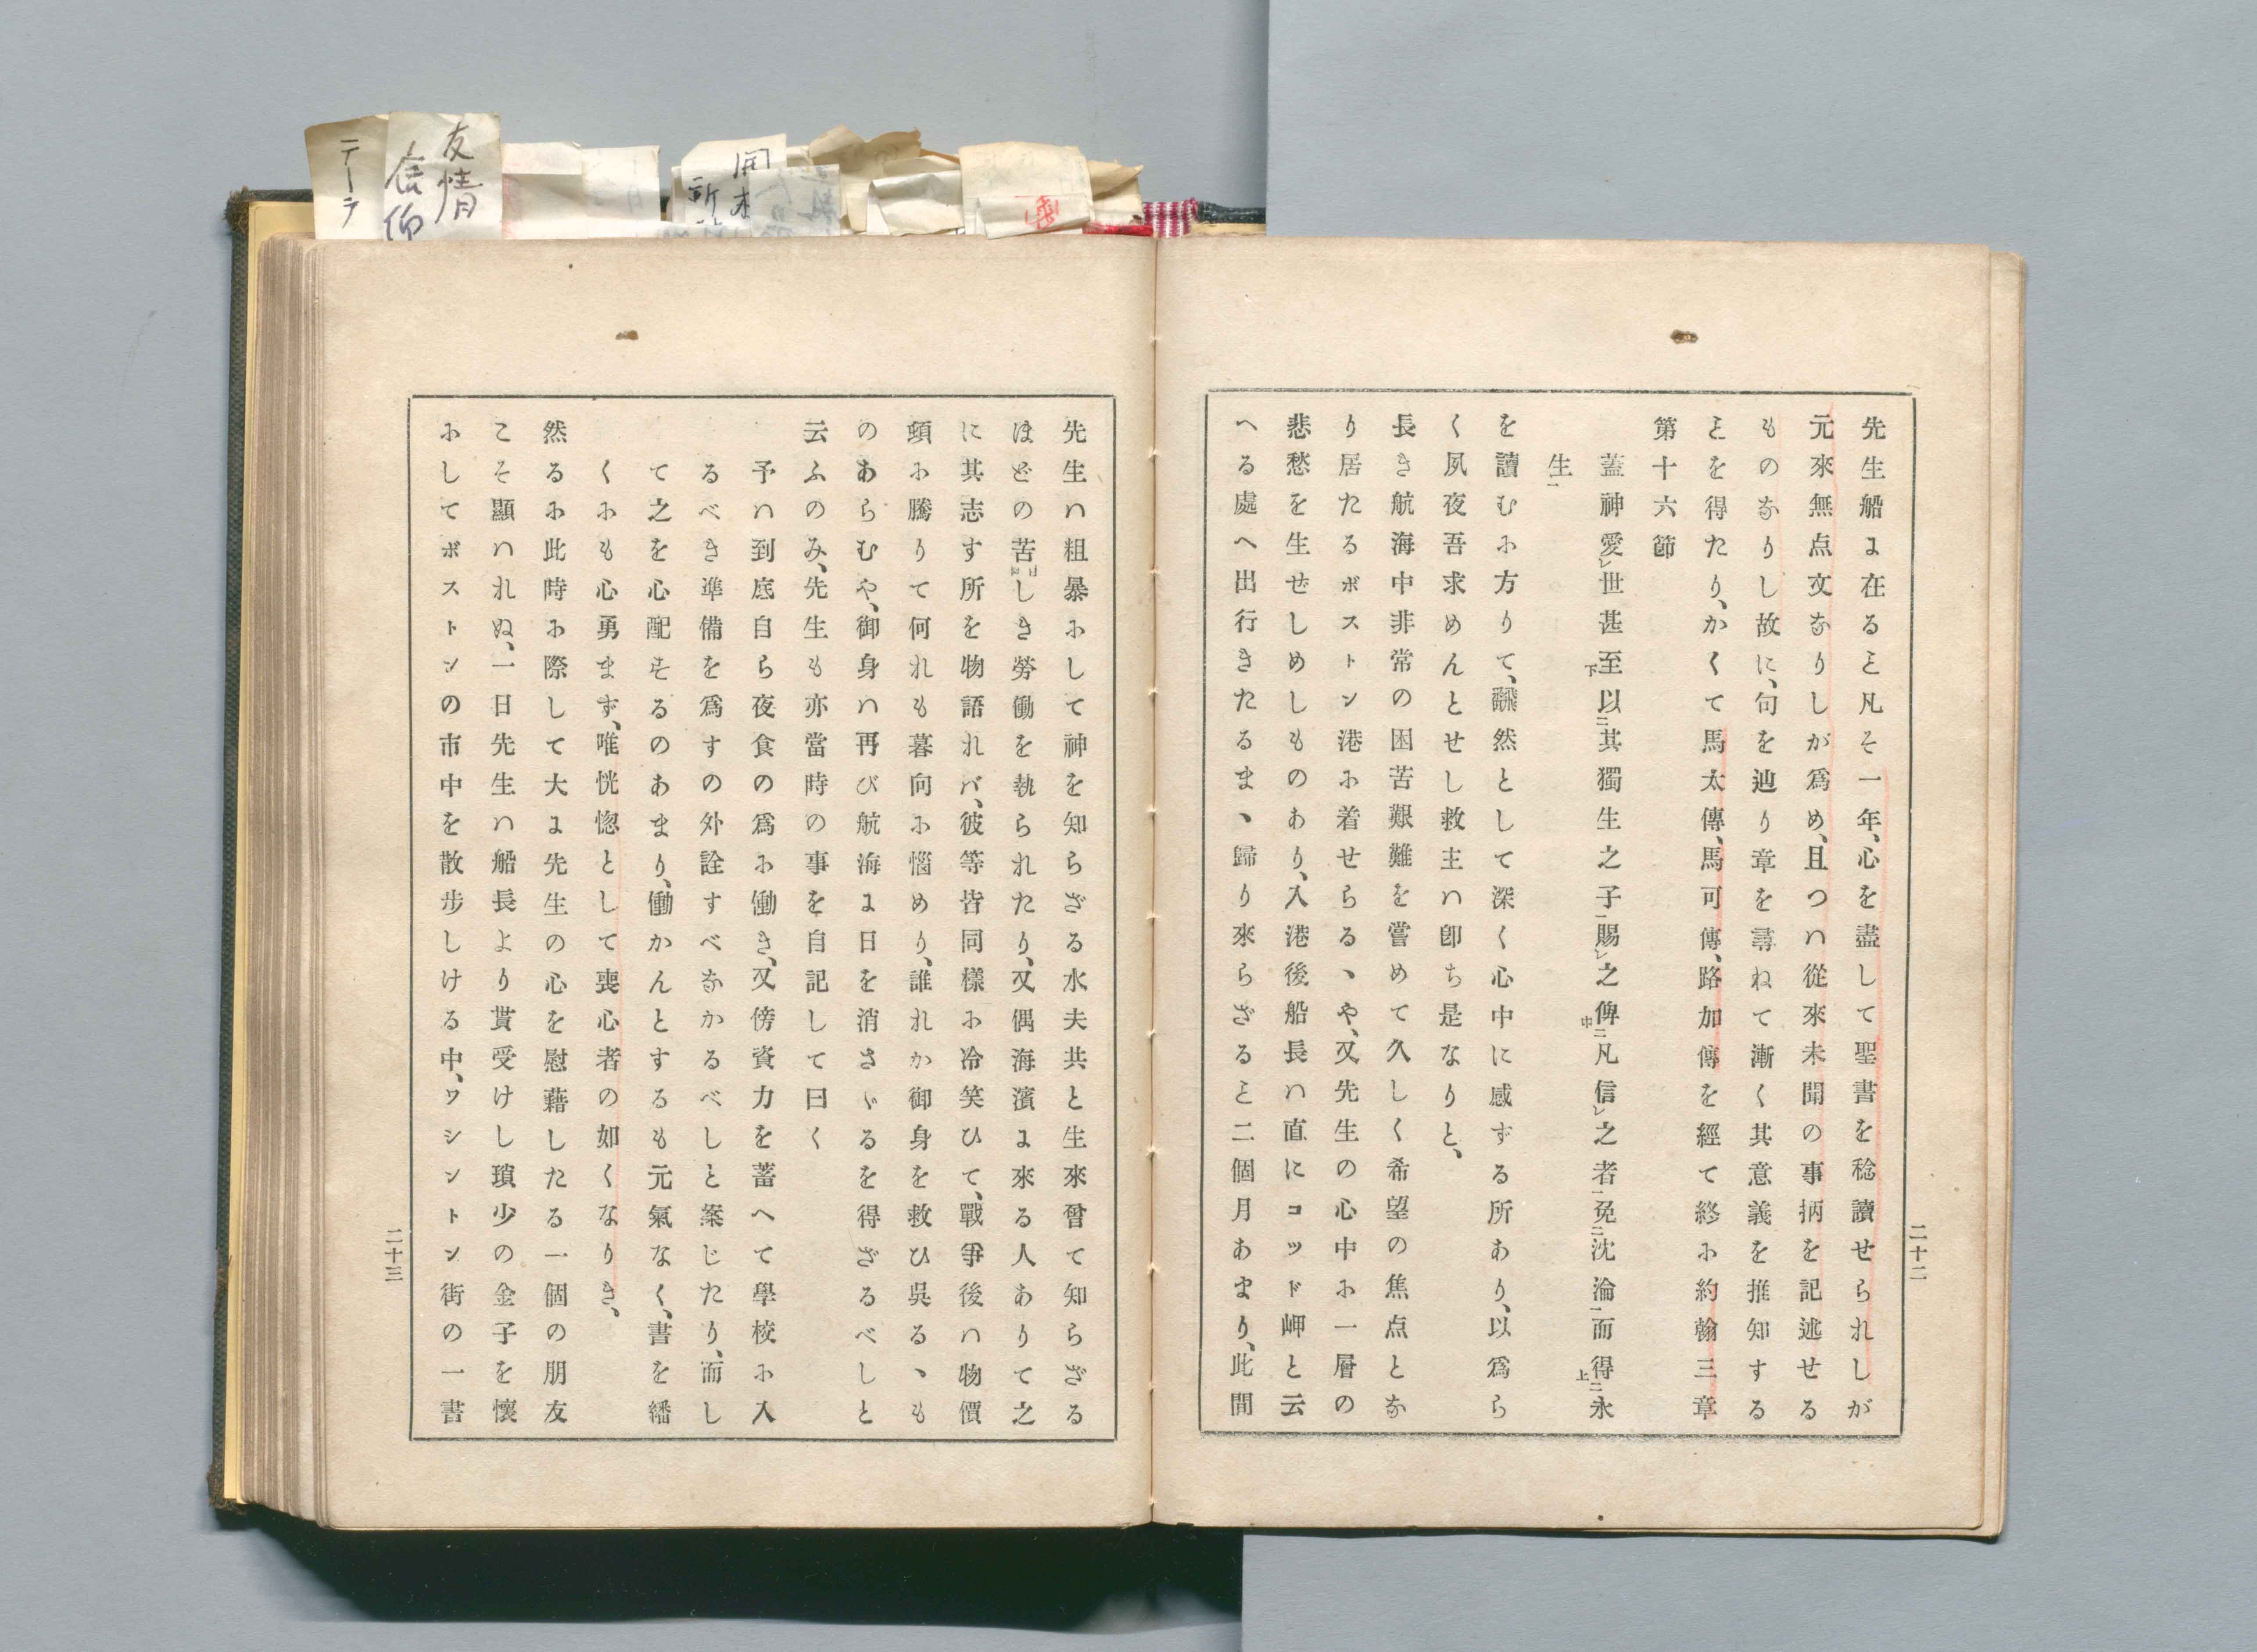 先生船に在ると凡そ一年、心を盡して聖書を稔讀せられしが
元來無点文なりしが爲め、且つハ從來未聞の事柄を記述せる
ものなりし故に、句を辿り章を尋ねて漸く其意義を推知する
とを得たり、かくて馬太傳、馬可傳、路加傳を經て終に約翰三章
第十六節
蓋神愛レ世甚至下以二其獨生之子一賜レ之俾中凡信レ之者一免二沈淪一而得上二永
生一
を讀むに方りて、飜然として深く心中に感ずる所あり、以爲ら
く夙夜吾求めんとせし救主ハ卽ち是なりと、
長き航海中非常の困苦艱難を嘗めて久しく希望の焦点とな
り居たるボストン港に着せらるヽや、又先生の心中に一層の
悲愁を生ぜしめしものあり、入港後船長ハ直にコッド岬と云
へる處へ出行きたるまヽ歸り來らざると二個月あまり、此間
二十二
先生ハ粗暴にして神を知らざる水夫共と生來曾て知らざる
ほどの苦しき勞働を執られたり、又偶海濱に來る人ありて之
に其志す所を物語れバ、彼等皆同樣に冷笑ひて、戰爭後ハ物價
頓に騰りて何れも暮向に惱めり、誰れか御身を救ひ呉るヽも
のあらむや、御身ハ再び航海に日を消さゞるを得ざるべしと
云ふのみ、先生も亦當時の事を自記して曰く
予ハ到底自ら夜食の爲に働き、又傍資力を蓄へて學校に入
るべき準備を爲すの外詮すべなかるべしと案じたり、而し
て之を心配するのあまり、働かんとするも元氣なく、書を繙
くにも心勇まず、唯恍惚として喪心者の如くなりき、
然るに此時に際して大に先生の心を慰藉したる一個の朋友
こそ顯ハれぬ、一日先生ハ船長より貰受けし瑣少の金子を懷
にしてボストンの市中を散步しける中、ワシントン街の一書
二十三
友情
信仰
テーラ